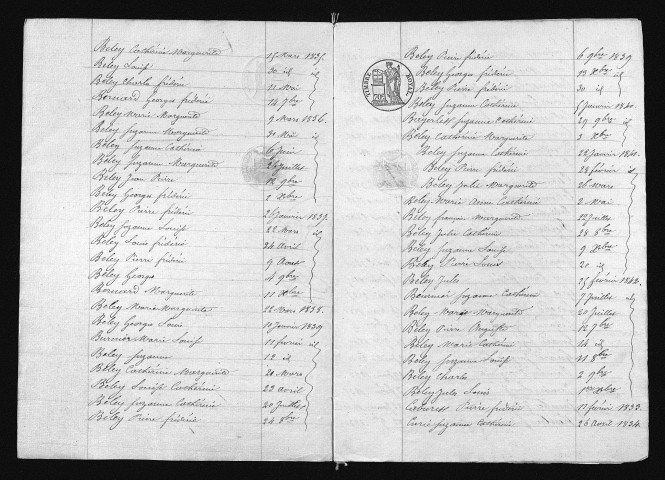 Beley Cathérine Marguerite 15 Mars 1835.
Beley Louise 30 id
Beley Charles fréderic 11 Mai
Bernard George fréderic 14 9bre
Beley Marie Marguerite 9 Mars 1836.
Beley Suzanne Marguerite 30 Mai id
Beley Suzanne Cathérine 6 Juin
Beley Suzanne Marguerite 26 Juillet
Beley Jean Pierre 12 9bre
Beley George fréderic 2 Xbre
Beley Pierre fréderic 21 Janvier 1837.
Beley Suzanne Louise 22 Mars id
Beley Louis fréderic 24 Avril
Beley Pierre fréderic 9 Aout
Beley George 4 9bre
Bernard Marguerite 11 Xbre
Beley Marie Marguerite 22 Mars 1838.
Beley George Louis 10 Janvier 1839
Marie Louise 11 février id
Beley Suzanne 12 id
Beley Cathérine Marguerite 20 Mars
Beley Louise Cathérine 23 avril
Beley Suzanne Cathérine 20 Juillet
Beley Pierre fréderic 24 8bre
TIMBRE ROYAL
Beley Pierre fréderic 6 9bre 1839
Beley George fréderic 13 Xbre id
Beley Pierre fréderic 30 id
Beley Suzanne Cathérine 5 Janvier 1840.
Suzanne Cathérine 29 9bre id
Beley Cathérine Marguerite 3 Xbre
Beley Suzanne Cathérine 22 Janvier 1841.
Beley Pierre fréderic 23 février id
Beley Julie Marguerite 26 Mars
Beley Marie Cathérine 3 Mai
Beley Marguerite 22 Juillet
Beley Julie Cathérine 28 8bre
Beley Suzanne Louise 9 Xbre
Beley Pierre Louis 20 id
Beley Jules 25 février 1842.
Suzanne Cathérine 7 Juillet id
Beley Marie Marguerite 20 Juillet
Beley Pierre Auguste 12 9bre
Beley Marie Cathérine 14 id
Beley Suzanne Louise 21 8bre
Beley Charles 2 9bre
Beley Jules Louis Xbre
Pierre fréderic 11 février 1833.
Curie Suzanne Cathérine 26 Avril 1834.